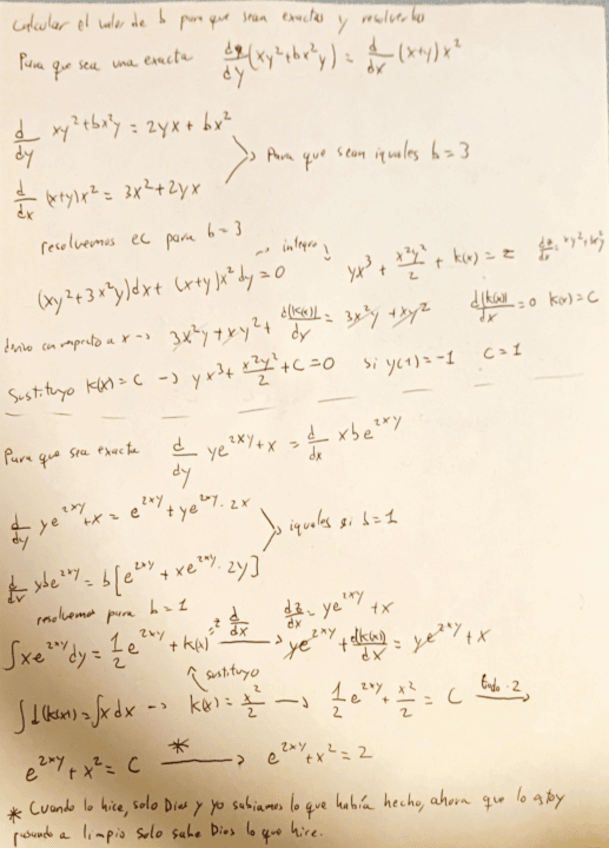 Calcular el valor de b para que sean exactas y resolverlas
Para que sea una exacta d/dy (xy²+bx²y) = d/dx (x+y)x²
d/dy xy²+bx²y = 2yx + bx²
> Para que sean iguales b=3
d/dx (x+y)x² = 3x²+2yx
resolvemos ec para b=3
(xy²+3x²y)dx + (x+y)x²dy = 0 → integro yx³ + x²y²/2 + k(x) = z dz/dx = xy²+bx²y
derivo con respecto a x → 3x²y + xy² + d(k(x))/dx = 3x²y + xy² d(k(x))/dx = 0 k(x) = C
Sustituyo k(x) = C → yx³ + x²y²/2 + C = 0 si y(1) = -1 C = 1
Para que sea exacta d/dy ye^2xy + x = d/dx xbe^2xy
d/dy ye^2xy + x = e^2xy + ye^2xy · 2x
> iguales si b=1
d/dx xbe^2xy = b[e^2xy + xe^2xy · 2y]
resolvemos para b=1
∫xe^2xy dy = 1/2 e^2xy + k(x) = z d/dx → dz/dx = ye^2xy + x ye^2xy + d(k(x))/dx = ye^2xy + x
↖ sustituyo
∫d(k(x)) = ∫x dx → k(x) = x²/2 → 1/2 e^2xy + x²/2 = C todo · 2 →
e^2xy + x² = C * → e^2xy + x² = 2
* Cuando lo hice, solo Dios y yo sabiamos lo que había hecho, ahora que lo estoy
pasando a limpio solo sabe Dios lo que hice.